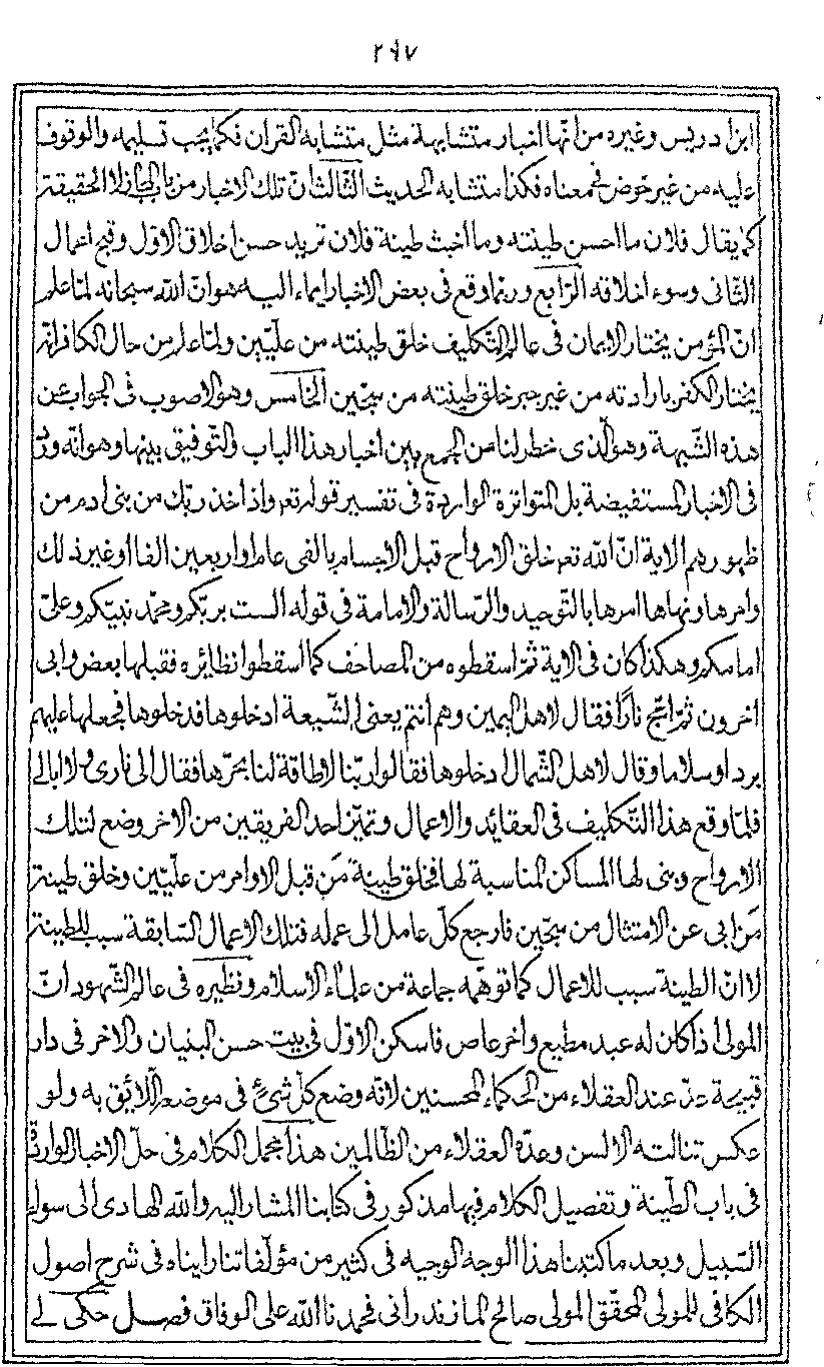 ٢٩٧
ابن ادريس وغيره من انّها اخبار متشابهة مثل متشابه القران فكما يجب تسليمه والوقوف
عليه من غير خوض فى معناه فكذا متشابه الحديث الثّالث انّ تلك الاخبار من باب المجاز لا الحقيقة
كما يقال فلان ما احسن طينته وما اخبث طينة فلان تريد حسن اخلاق الاوّل وقبح اعمال
الثّانى وسوء اخلاقه الرّابع وربّما وقع فى بعض الاخبار ايماء اليه هو انّ الله سبحانه لمّا علم
انّ المؤمن يختار الايمان فى عالم التّكليف خلق طينته من علّيّين ولمّا علم من حال الكافر انّه
يختار الكفر بارادته من غير جبر خلق طينته من سجّين الخامس وهو الاصوب فى الجواب عن
هذه الشّبهة وهو الّذى خطر لنا من الجمع بين اخبار هذا الباب والتّوفيق بينها وهو انّه ورد
فى الاخبار المستفيضة بل المتواترة الواردة فى تفسير قوله تع واذ اخذ ربّك من بنى ادم من
ظهورهم الاية انّ الله تع خلق الارواح قبل الاجسام بالفى عام او اربعين الفا او غير ذلك
وامرها ونهاها امرها بالتّوحيد والرّسالة والامامة فى قوله الست بربّكم ومحمّد نبيّكم وعلىّ
امامكم وهكذا كان فى الاية ثمّ اسقطوه من المصاحف كما اسقطوا نظائره فقبلها بعض وابى
اخرون ثمّ اجّج نارًا فقال لاهل اليمين وهم انتم يعنى الشّيعة ادخلوها فدخلوها فجعلها عليهم
بردا وسلاما وقال لاهل الشّمال ادخلوها فقالوا ربّنا لا طاقة لنا بحرّها فقال الى نارى ولا ابالى
فلمّا وقع هذا التّكليف فى العقائد والاعمال وتميّز احد الفريقين من الاخر وضع لتلك
الارواح وبنى لها المساكن المناسبة لها فخلق طينة مَن قبل الاوامر من علّيّين وخلق طينة
مَن ابى عن الامتثال من سجّين فارجع كلّ عامل الى عمله فتلك الاعمال السّابقة سبب للطينة
لا انّ الطينة سبب للاعمال كما توهّمه جماعة من علماء الاسلام ونظيره فى عالم الشّهود انّ
المولى اذا كان له عبد مطيع واخر عاص فاسكن الاوّل فى بيت حسن البنيان والاخر فى دار
قبيحة عدّ عند العقلاء من الحكماء المحسنين لانّه وضع كلّ شئ فى موضعه اللّائق به ولو
عكس تنالته الالسن وعدّه العقلاء من الظّالمين هذا مجمل الكلام فى حلّ الاخبار الواردة
فى باب الطّينة وتفصيل الكلام فيها مذكور فى كتابنا المشار اليه والله الهادى الى سواء
السّبيل وبعد ما كتبنا هذا الوجه الوجيه فى كثير من مؤلّفاتنا رايناه فى شرح اصول
الكافى للمولى المحقّق المولى صالح المازندرانى فحمدنا الله على الوفاق فصل حكى لى